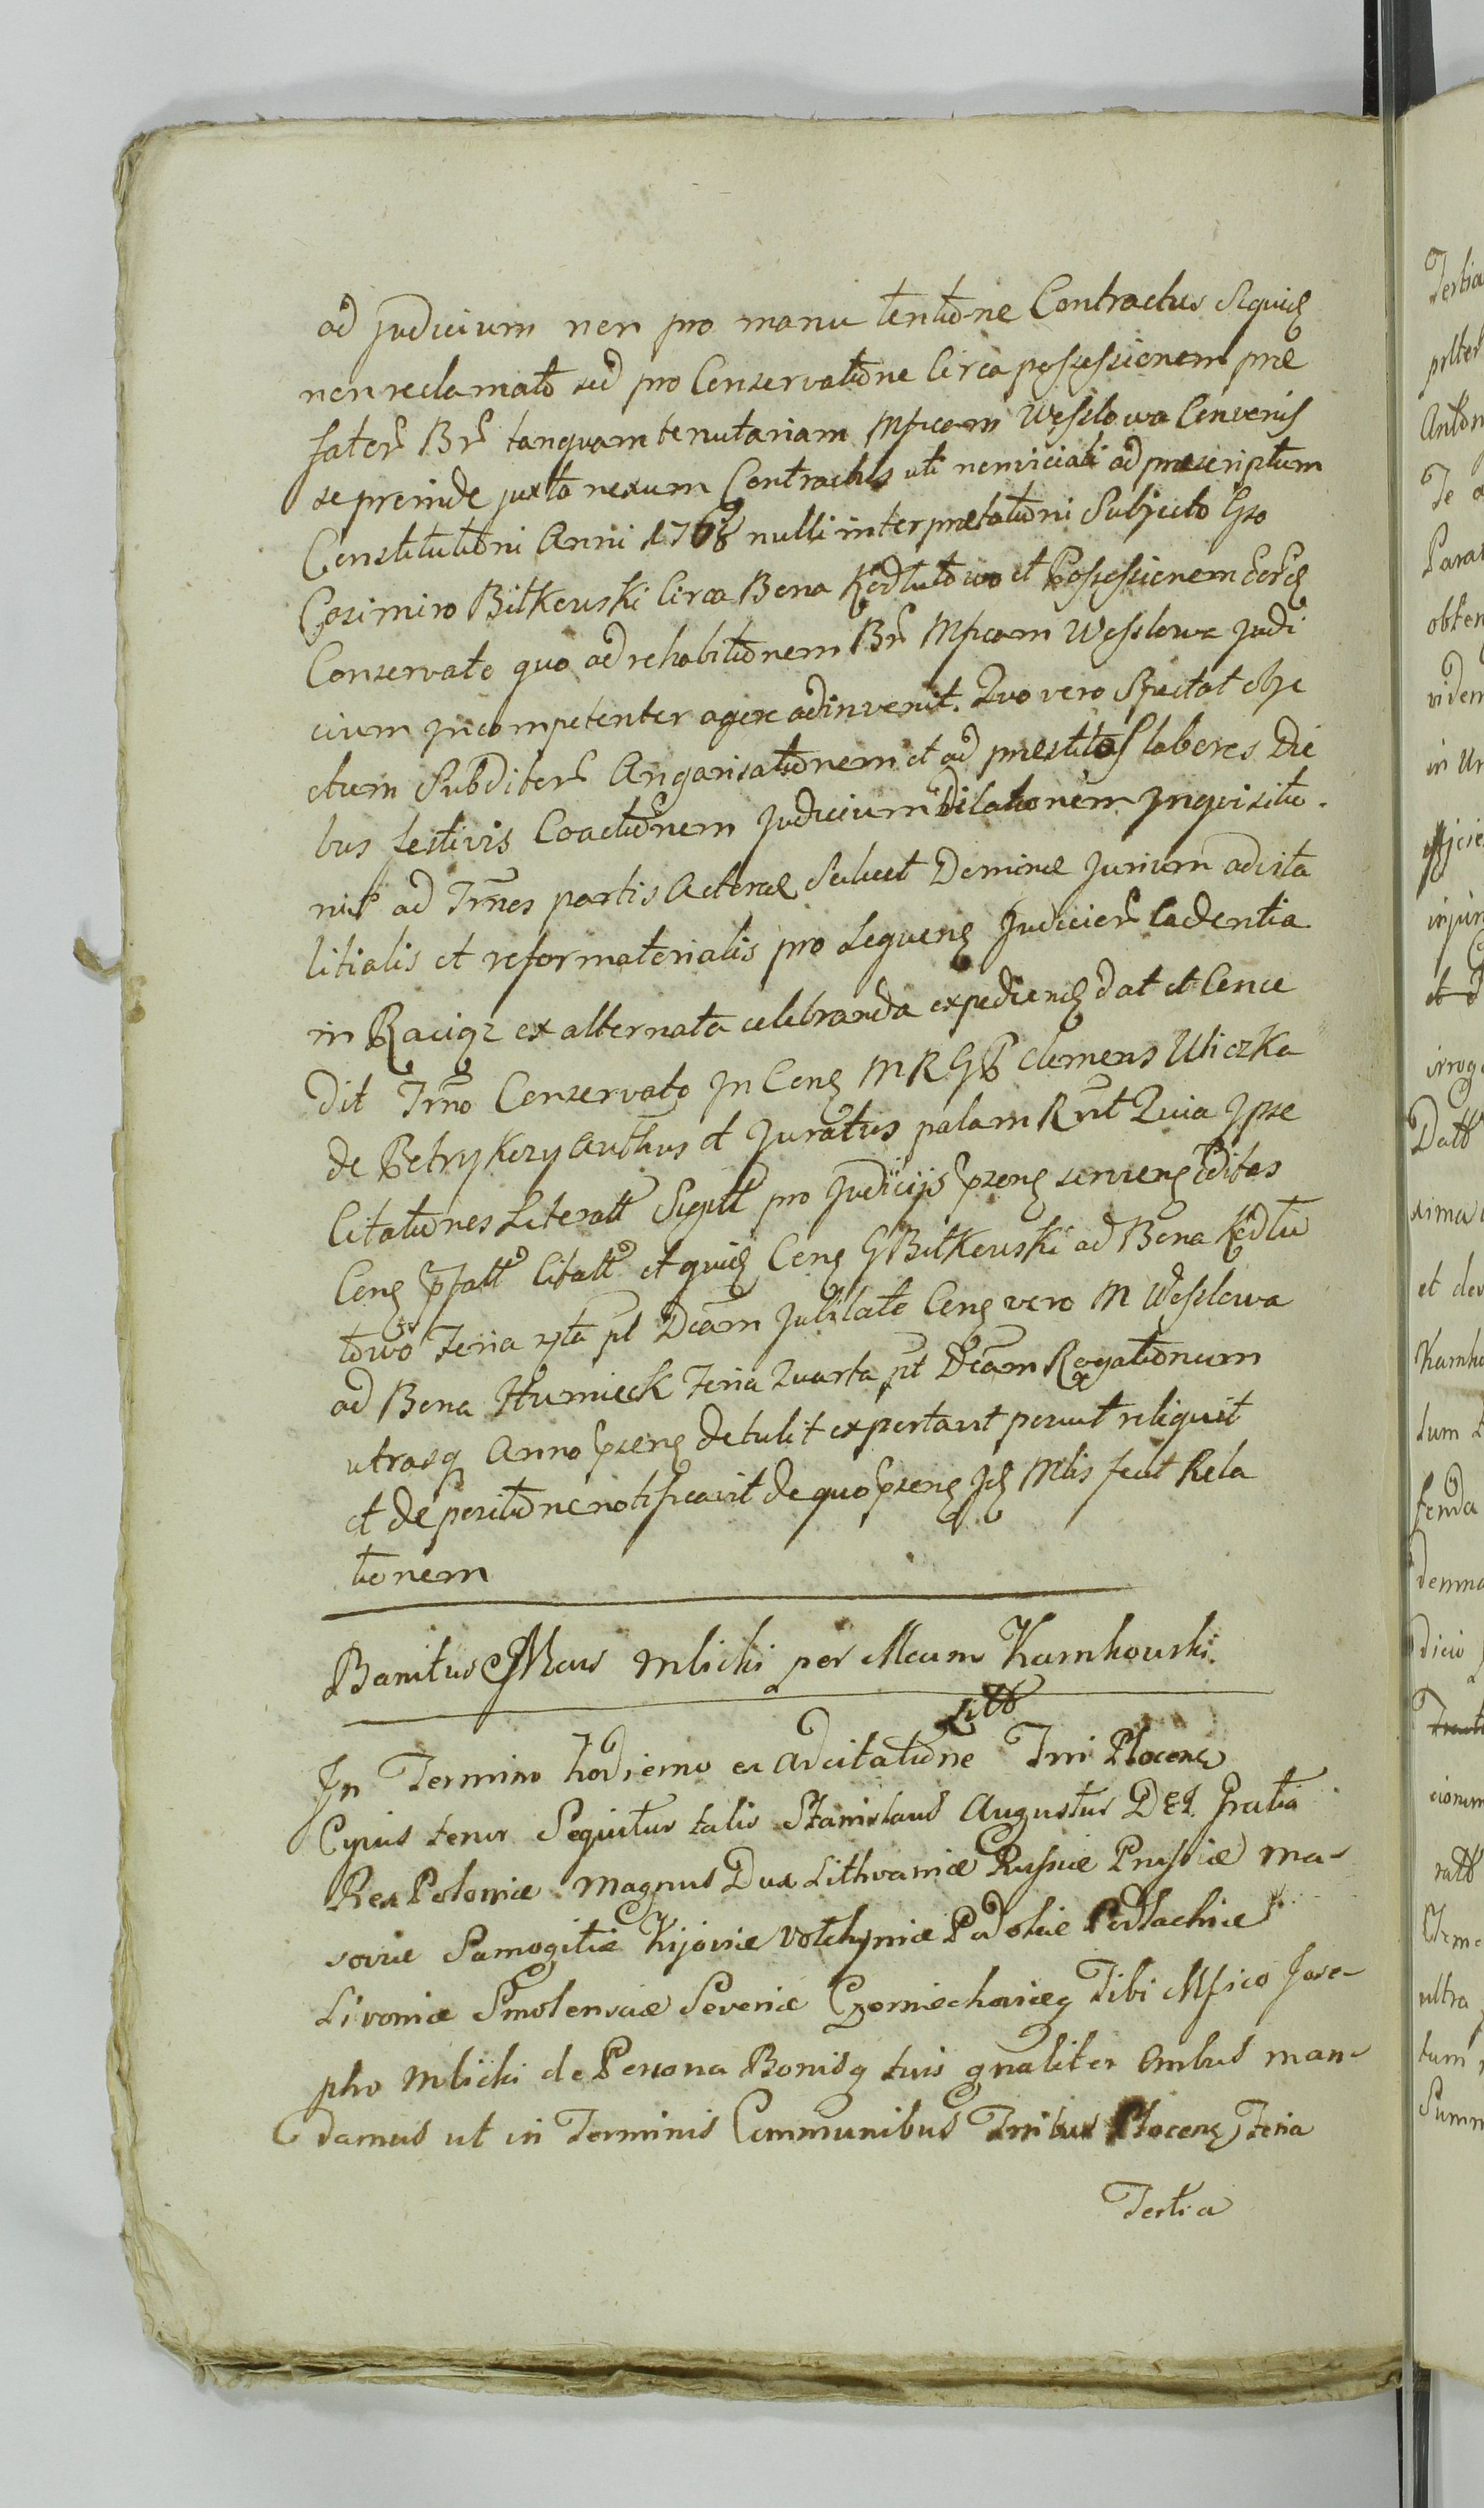 ad Judicium non pro manu tentione Contractus Siquid
non reclamato sed pro Conservatione Circa possessionem præ
fator Br tanquam tenutariam Mficam Wesslowa Convenis
se proinde juxta nexum Contractus uti nemiciali ad præscriptum
Constitutioni Anni 1768 nulli interpretationi Subjecto Gso
Casimiro Bitkowski Circa Bona Kędlutowo et Possessionem eor
Conservato quo ad rehabitionem Br Mficam Wesslowa Judi
cium Incompetenter agere adinvenit. Quo vero Spectat obje
ctum Subditor Angarisationem et ad præstitas labores Die
bus festivis Coactionem Judicium Dilationem Inquisitio
nis ad Trnos partis Actoreæ Scilicet Dominæ Jurium advita
litialis et reformatorialis pro sequen Judicior Cadentia
in Raciąz ex alternata celebranda expedien dat et Conce
dit Trno Conservato In Con M R G P Clemens Uliczka
de Petrykozy Authus et Juratus palam Rnt Quia Ipse
Citationes Literatt Sigtt pro Judicijs Prsen servien editas
Con Pfatt Citatt et quid Con G Bitkowski ad Bona Kędlu
towo Feria 5ta pt Dcam Jubilate Con vero M Wesslowa
ad Bona Humieck Feria Quarta pt Dcam Rogationum
utrasq Anno Prsen detulit exportavit posuit reliquit
et de positione notificavit de quo Prsen Jd Mlis fecit Rela
tionem
Banitus GMcus Mlicki per Mcum Karnkowski
Litt
In Termino hodierno ex Adcitatione Trri Plocens
Cujus tenor Sequitur talis Stanislaus Augustus DEI Gratia
Rex Poloniæ Magnus Dux Lithvaniæ Russiæ Prussiæ Ma-
soviæ Samogitiæ Kijoviæ Volhyniæ Podoliæ Podlachiæ
Livoniæ Smolensciæ Severiæ Czerniechoviæq Tibi Mfico Jose-
pho Mlicki de Persona Bonisq tuis gnaliter Ombus man-
damus ut in Terminis Communibus Trribus Plocens Feria
Tertia